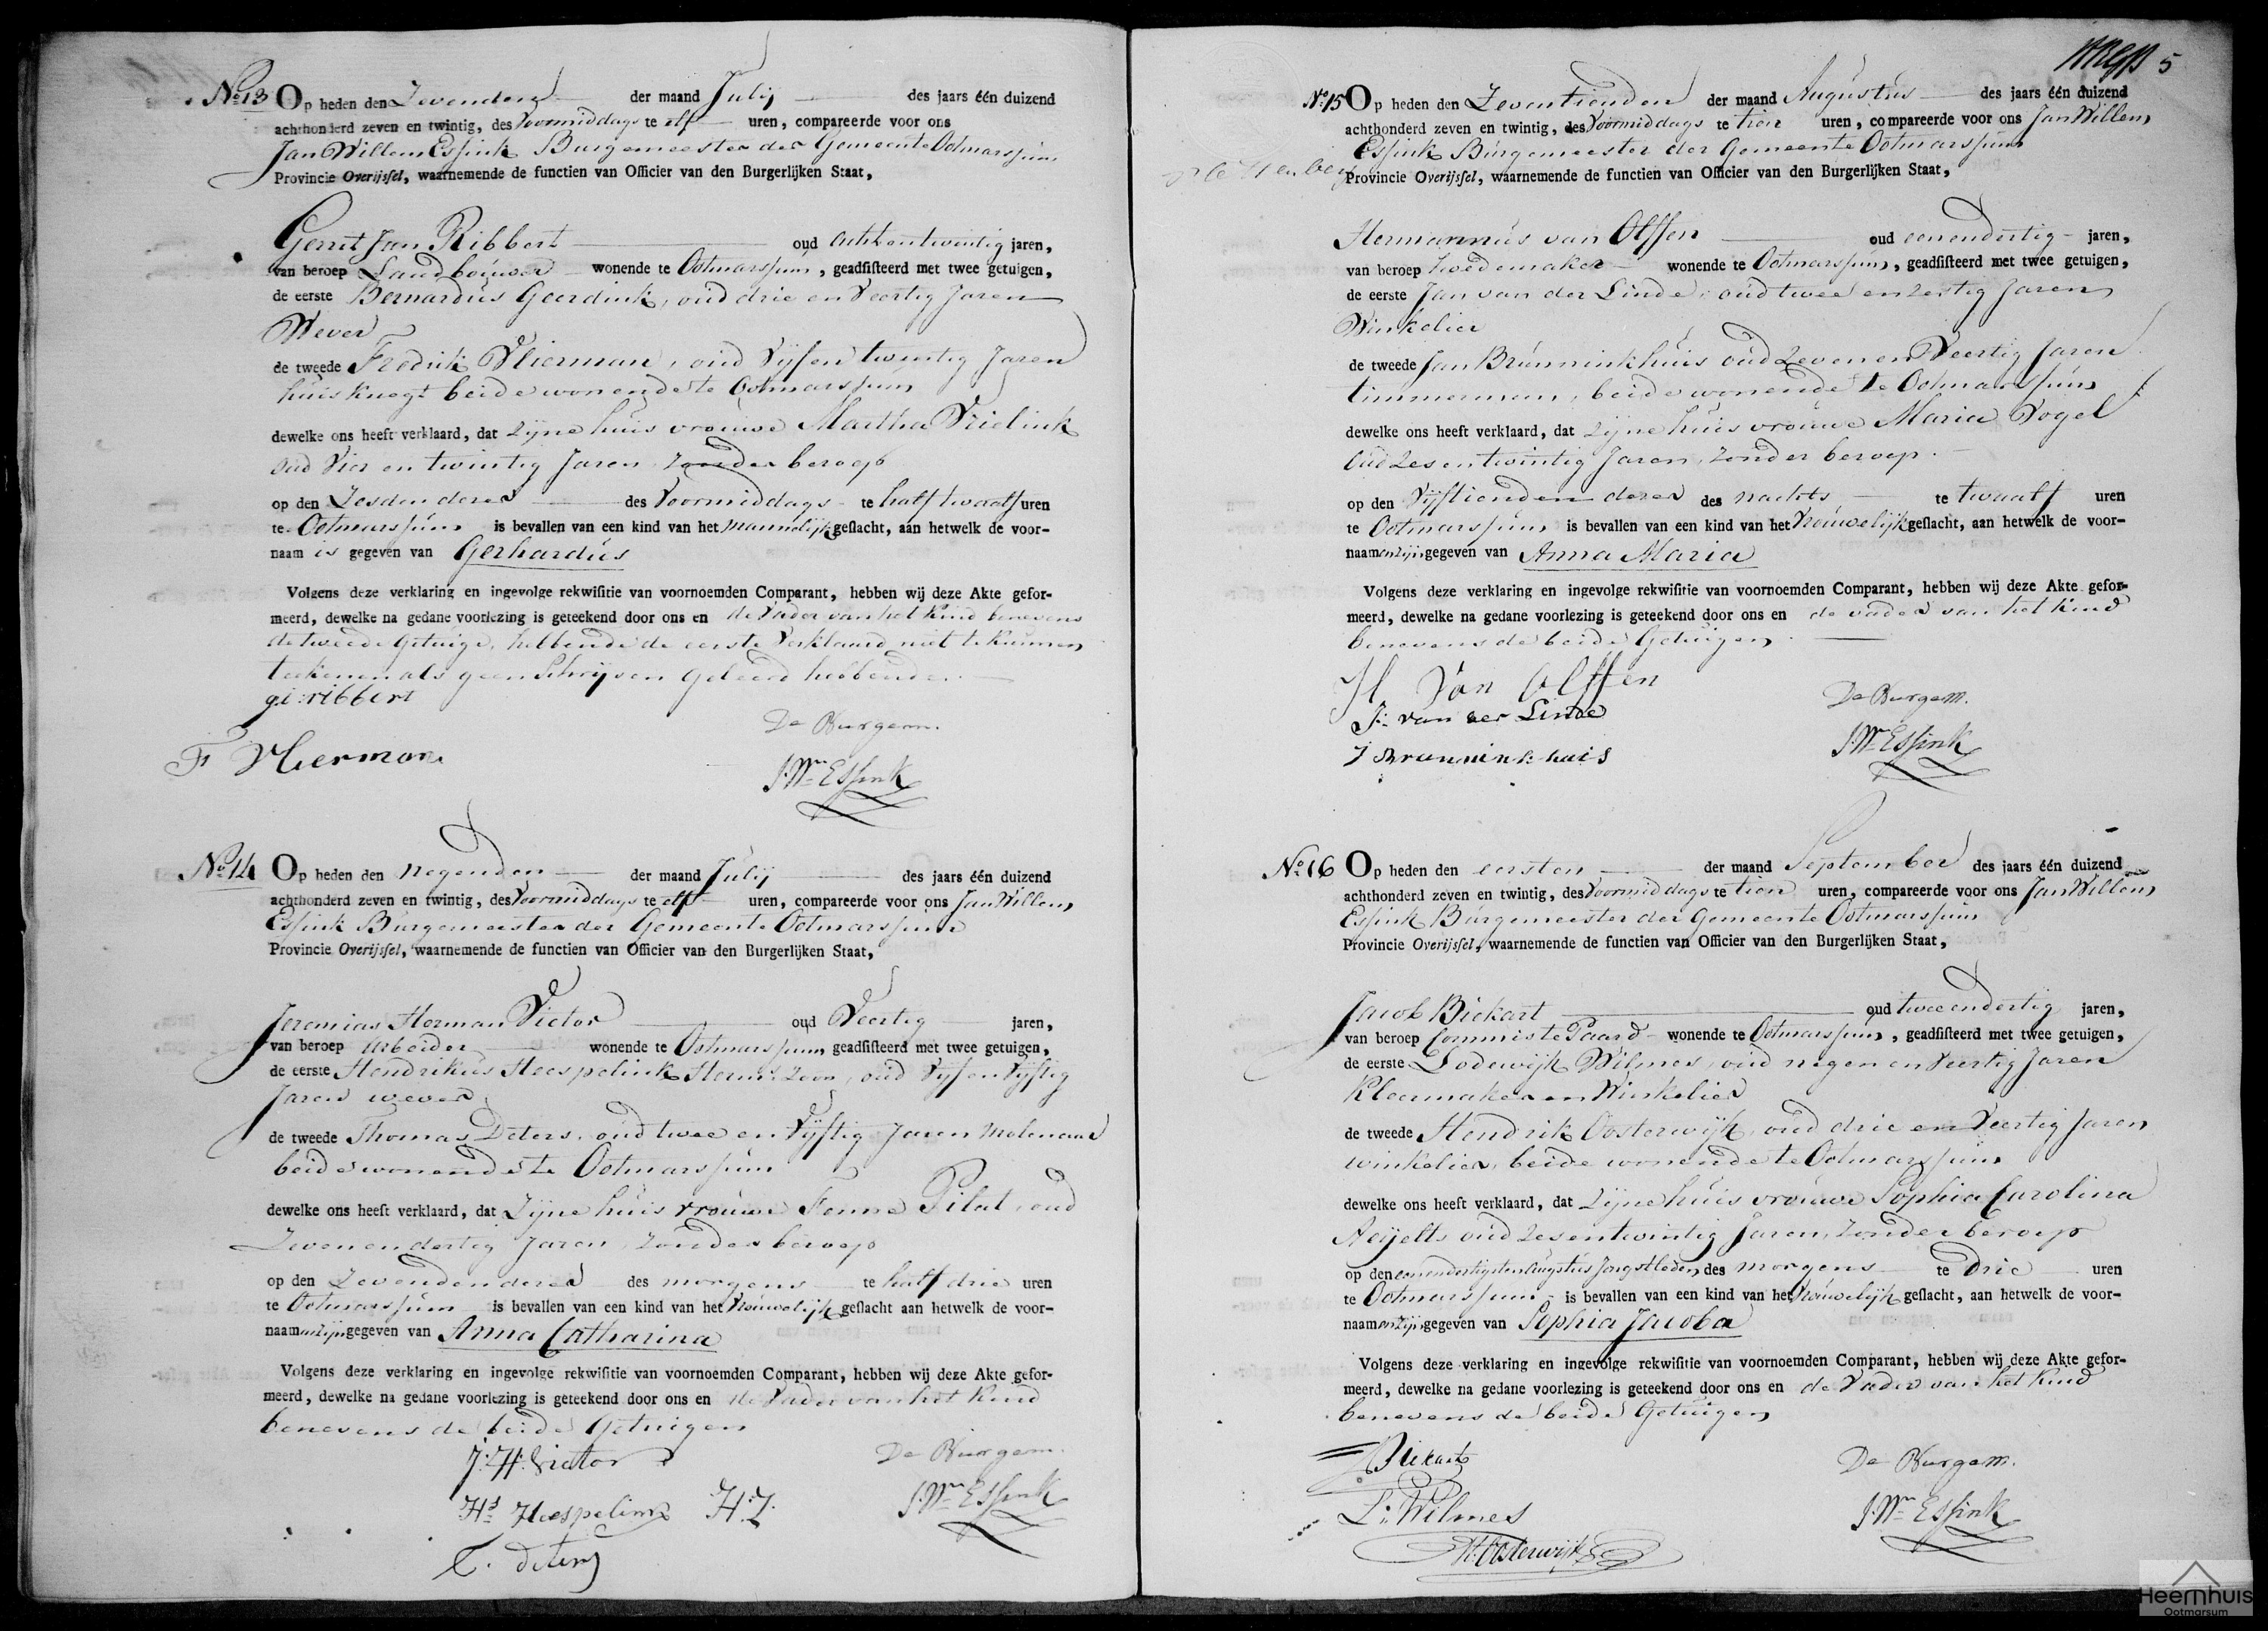 No 13 Op heden den Zevenden der maand Julij des jaars één duizend
achthonderd zeven en twintig, des Voormiddags te elf uren, compareerde voor ons
Jan Willem Essink Burgemeester der Gemeente Ootmarssum
Provincie Overijssel, waarnemende de functien van Officier van den Burgerlijken Staat,
Gerrit Jan Ribbert oud achtentwintig jaren,
van beroep Landbouwer wonende te Ootmarssum, geadsisteerd met twee getuigen,
de eerste Bernardus Geerdink, oud drie en Veertig Jaren
Wever
de tweede Fredrik Vlierman, oud Vijfen twintig Jaren
huisknegt beide wonende te Ootmarssum
dewelke ons heeft verklaard, dat Zijne huis vrouwe Martha Vrielink
oud Vier en twintig Jaren, Zonder beroep
op den Zesden dezer des Voormiddags te half twaalf uren
te Ootmarssum is bevallen van een kind van het mannelijk geslacht, aan hetwelk de voor-
naam is gegeven van Gerhardus
Volgens deze verklaring en ingevolge rekwisitie van voornoemden Comparant, hebben wij deze Akte gefor-
meerd, dewelke na gedane voorlezing is geteekend door ons en de Vader van het Kind benevens
de tweede Getuige, hebbende de eerste Verklaard niet te kunnen
teekenen als geen Schrijven geleerd hebbende.
ge: ribbert
De Burgem.
F Vlierman
J. Wm Essink
No 14 Op heden den Negenden der maand Julij des jaars één duizend
achthonderd zeven en twintig, des Voormiddags te elf uren, compareerde voor ons Jan Willem
Essink Burgemeester der Gemeente Ootmarssum
Provincie Overijssel, waarnemende de functien van Officier van den Burgerlijken Staat,
Jeremias Herman Victor oud Veertig jaren,
van beroep arbeider wonende te Ootmarssum, geadsisteerd met twee getuigen,
de eerste Hendrikus Heespelink Herm: Zoon, oud Vijf en Vijftig
Jaren wever,
de tweede Thomas Deters, oud twee en Vijftig Jaren Molenaar
beide wonende te Ootmarssum
dewelke ons heeft verklaard, dat Zijne huis vrouwe Fenne Pilat, oud
Zevenendertig Jaren, Zonder beroep
op den Zevenden dezer des morgens te half drie uren
te Ootmarssum is bevallen van een kind van het Vrouwelijk geslacht aan hetwelk de voor-
naamen zijn gegeven van Anna Catharina
Volgens deze verklaring en ingevolge rekwisitie van voornoemden Comparant, hebben wij deze Akte gefor-
meerd, dewelke na gedane voorlezing is geteekend door ons en de Vader van het Kind
benevens de beide Getuigen
J: H: Victor
De Burgem.
Hs Heespelink H: Z:
J. Wm Essink
T. deters
5
No 15 Op heden den Zeventienden der maand Augustus des jaars één duizend
achthonderd zeven en twintig, des Voormiddags te tien uren, compareerde voor ons Jan Willem
Essink Burgemeester der Gemeente Ootmarssum
Provincie Overijssel, waarnemende de functien van Officier van den Burgerlijken Staat,
Hermannus van Olffen oud eenendertig jaren,
van beroep hoedemaker wonende te Ootmarssum, geadsisteerd met twee getuigen,
de eerste Jan van der Linde, oud twee en zestig Jaren
Winkelier
de tweede Jan Brunninkhuis oud Zeven en Veertig Jaren
timmerman, beide wonende te Ootmarssum
dewelke ons heeft verklaard, dat Zijne huis vrouwe Maria Vogel
oud Zesentwintig Jaren, Zonder beroep.
op den Vijftienden dezer des nachts te twaalf uren
te Ootmarssum is bevallen van een kind van het Vrouwelijk geslacht, aan hetwelk de voor-
naamen zijn gegeven van Anna Maria
Volgens deze verklaring en ingevolge rekwisitie van voornoemden Comparant, hebben wij deze Akte gefor-
meerd, dewelke na gedane voorlezing is geteekend door ons en de vader van het kind
benevens de beide Getuigen
H van Olffen
De Burgem.
J: van der Linde
J. Wm Essink
J Brunninkhuis
No 16 Op heden den eersten der maand September des jaars één duizend
achthonderd zeven en twintig, des Voormiddags te tien uren, compareerde voor ons Jan Willem
Essink Burgemeester der Gemeente Ootmarssum
Provincie Overijssel, waarnemende de functien van Officier van den Burgerlijken Staat,
Jacob Bickart oud tweeendertig jaren,
van beroep Commis te Paard wonende te Ootmarssum, geadsisteerd met twee getuigen,
de eerste Lodewijk Wilmes, oud negen en Veertig Jaren
Kleermaker en Winkelier
de tweede Hendrik Oosterwijk, oud drie en Veertig Jaren
winkelier, beide wonende te Ootmarssum
dewelke ons heeft verklaard, dat Zijne huis vrouwe Sophia Carolina
oud Zesentwintig Jaren, Zonder beroep
op den eenendertigsten Augustus Jongstleden des morgens te drie uren
te Ootmarssum is bevallen van een kind van het Vrouwelijk geslacht, aan hetwelk de voor-
naamen zijn gegeven van Sophia Jacoba
Volgens deze verklaring en ingevolge rekwisitie van voornoemden Comparant, hebben wij deze Akte gefor-
meerd, dewelke na gedane voorlezing is geteekend door ons en de Vader van het Kind
benevens de beide Getuigen
Bickart
De Burgem.
L: Wilmes
J. Wm Essink
H: Oosterwijk
Heemhuis
Ootmarsum